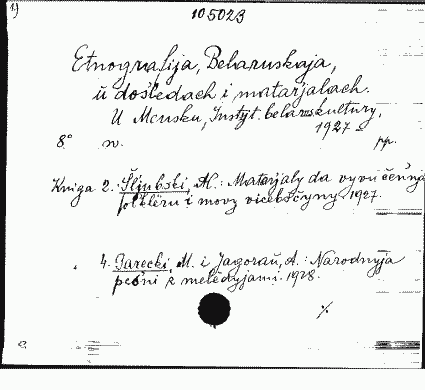 1)
105023
Etnografija, Belaruskaja,
ŭ dośledach i matarjalach.
U Mensku, Instyt. belarus. kultury,
1927 –
8° w. pp.
Kniga 2. Šljubski, A.: Matarjaly da vyvučeńnja
folkleru i movy vicebščyny. 1927.
4. Harecki, M. i Jagoraŭ, A.: Narodnyja
peśni z melodyjami. 1928.